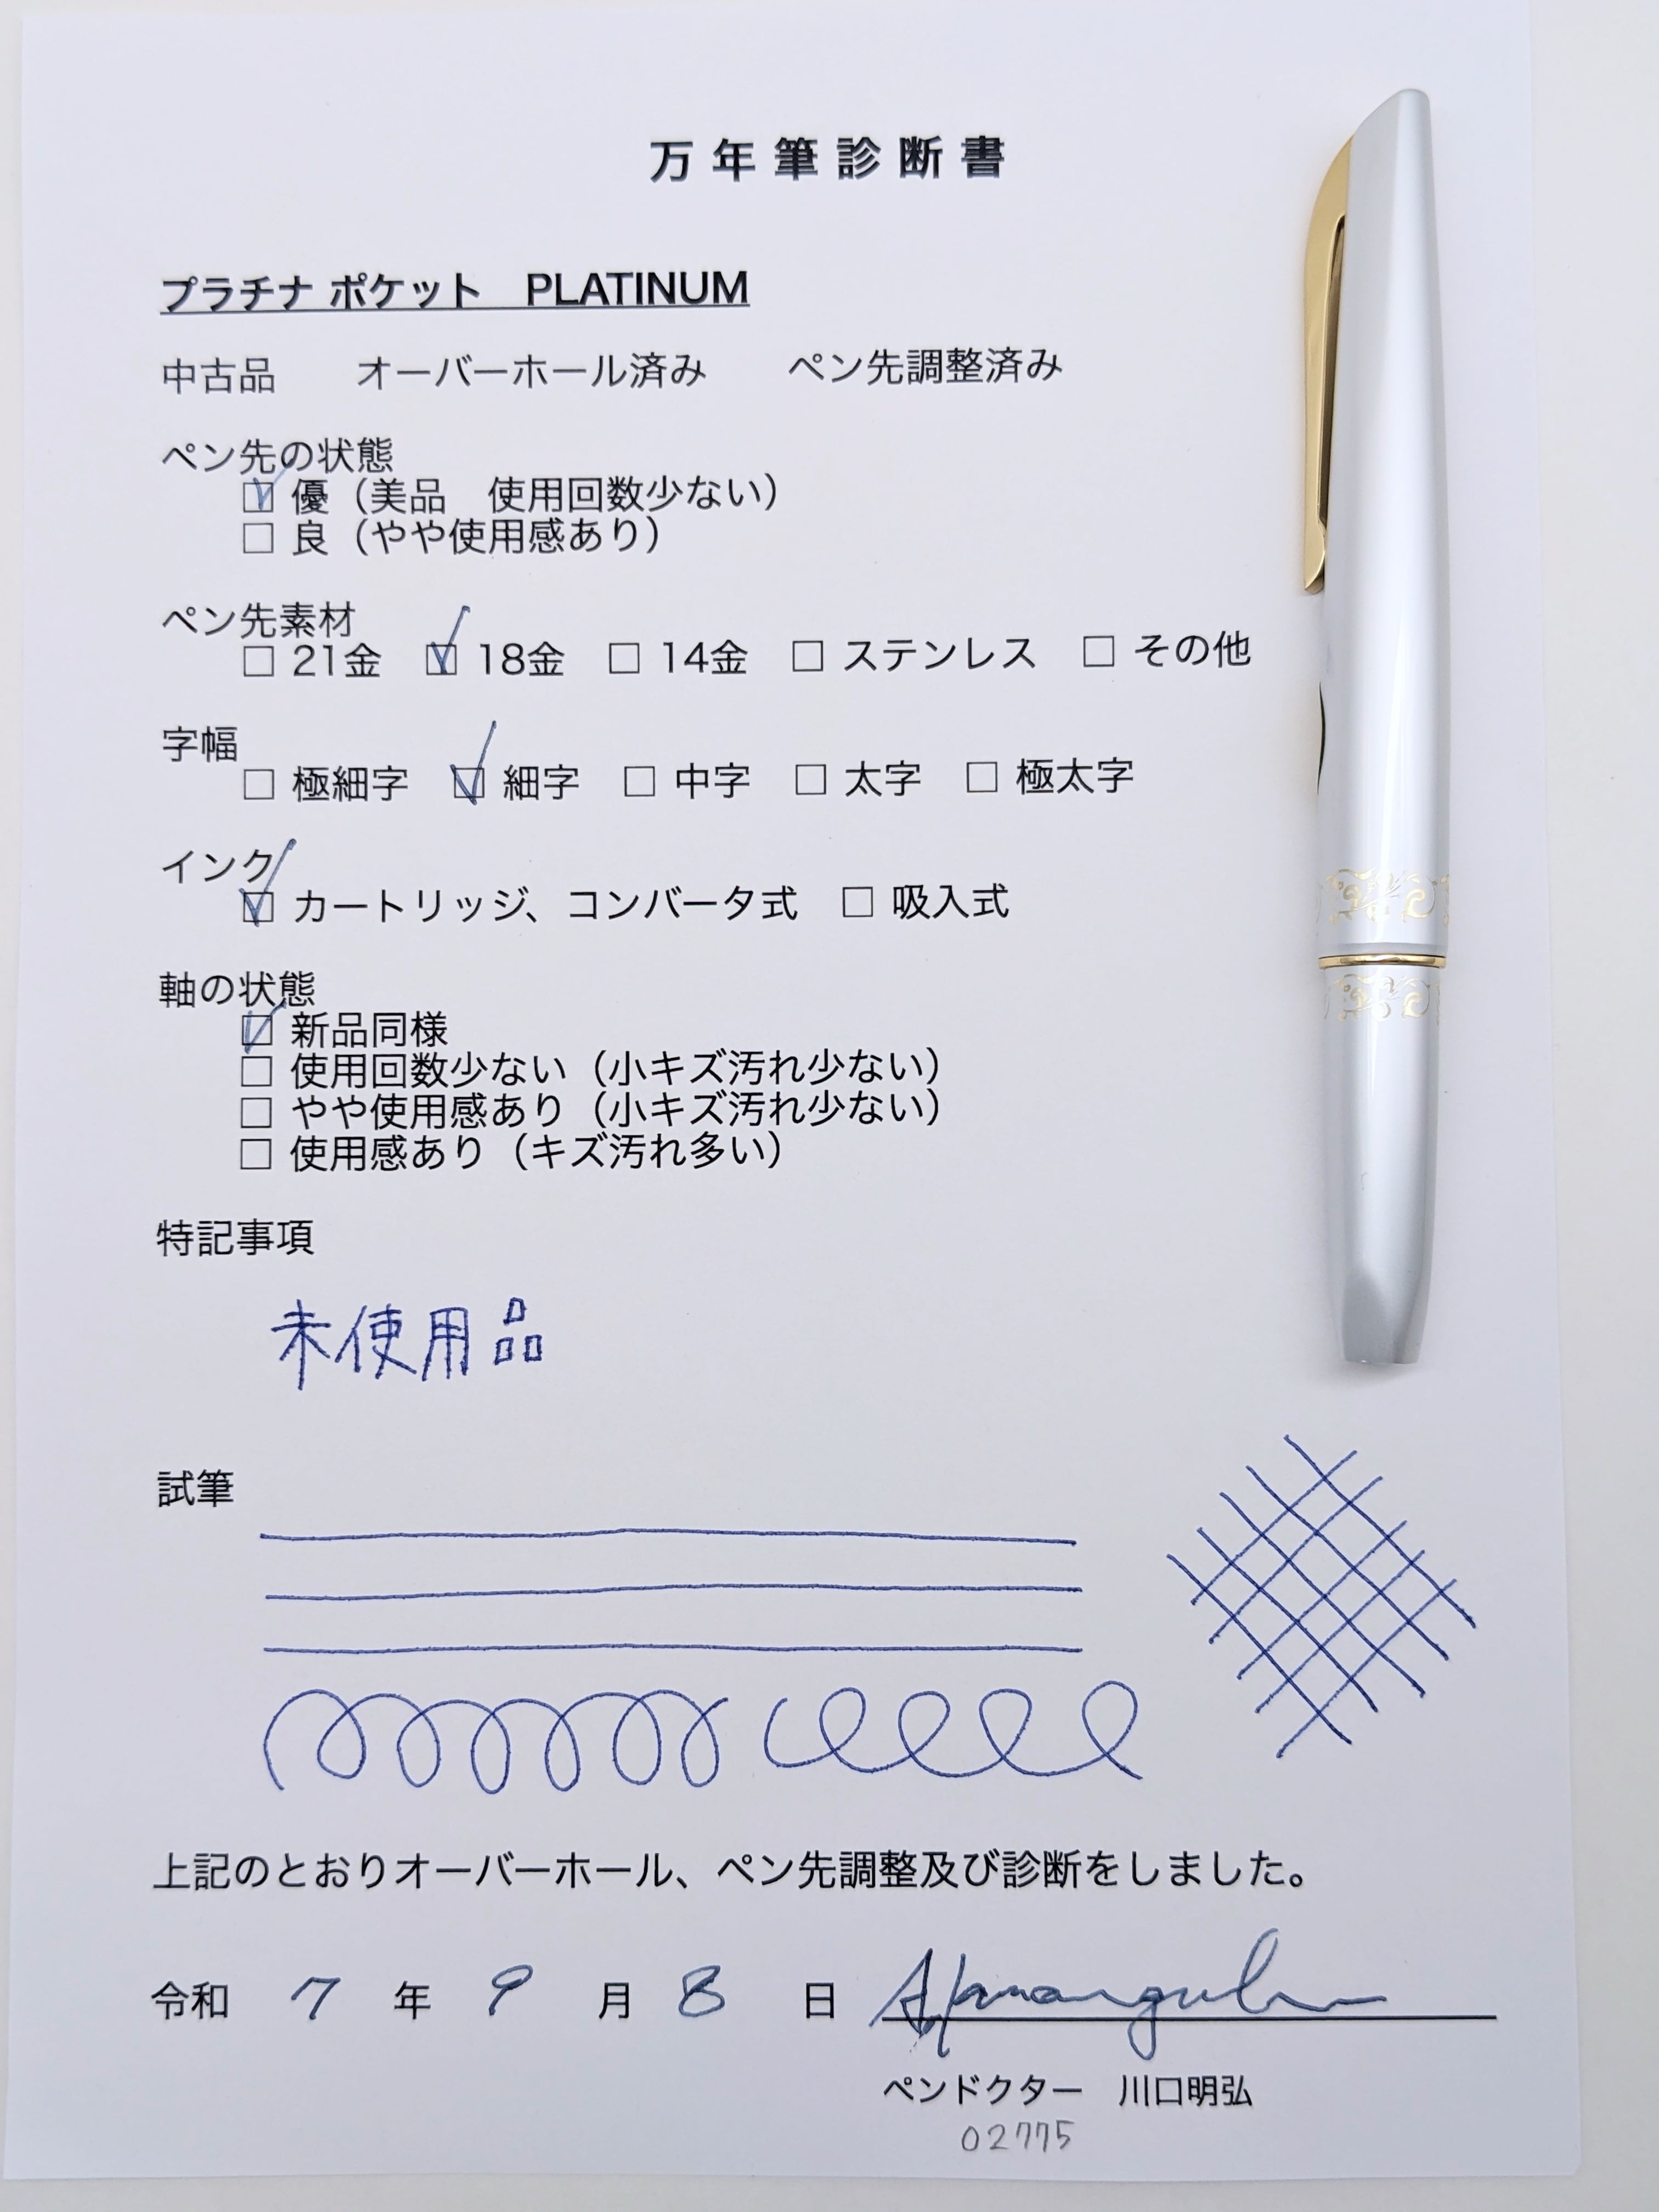 万年筆診断書
プラチナ ポケット　PLATINUM
中古品　オーバーホール済み　ペン先調整済み
ペン先の状態
☑ 優（美品　使用回数少ない）
□ 良（やや使用感あり）
ペン先素材
□ 21金　☑ 18金　□ 14金　□ ステンレス　□ その他
字幅
□ 極細字　☑ 細字　□ 中字　□ 太字　□ 極太字
インク
☑ カートリッジ、コンバータ式　□ 吸入式
軸の状態
☑ 新品同様
□ 使用回数少ない（小キズ汚れ少ない）
□ やや使用感あり（小キズ汚れ少ない）
□ 使用感あり（キズ汚れ多い）
特記事項
未使用品
試筆
上記のとおりオーバーホール、ペン先調整及び診断をしました。
令和 7 年 9 月 8 日
ペンドクター　川口明弘
02775